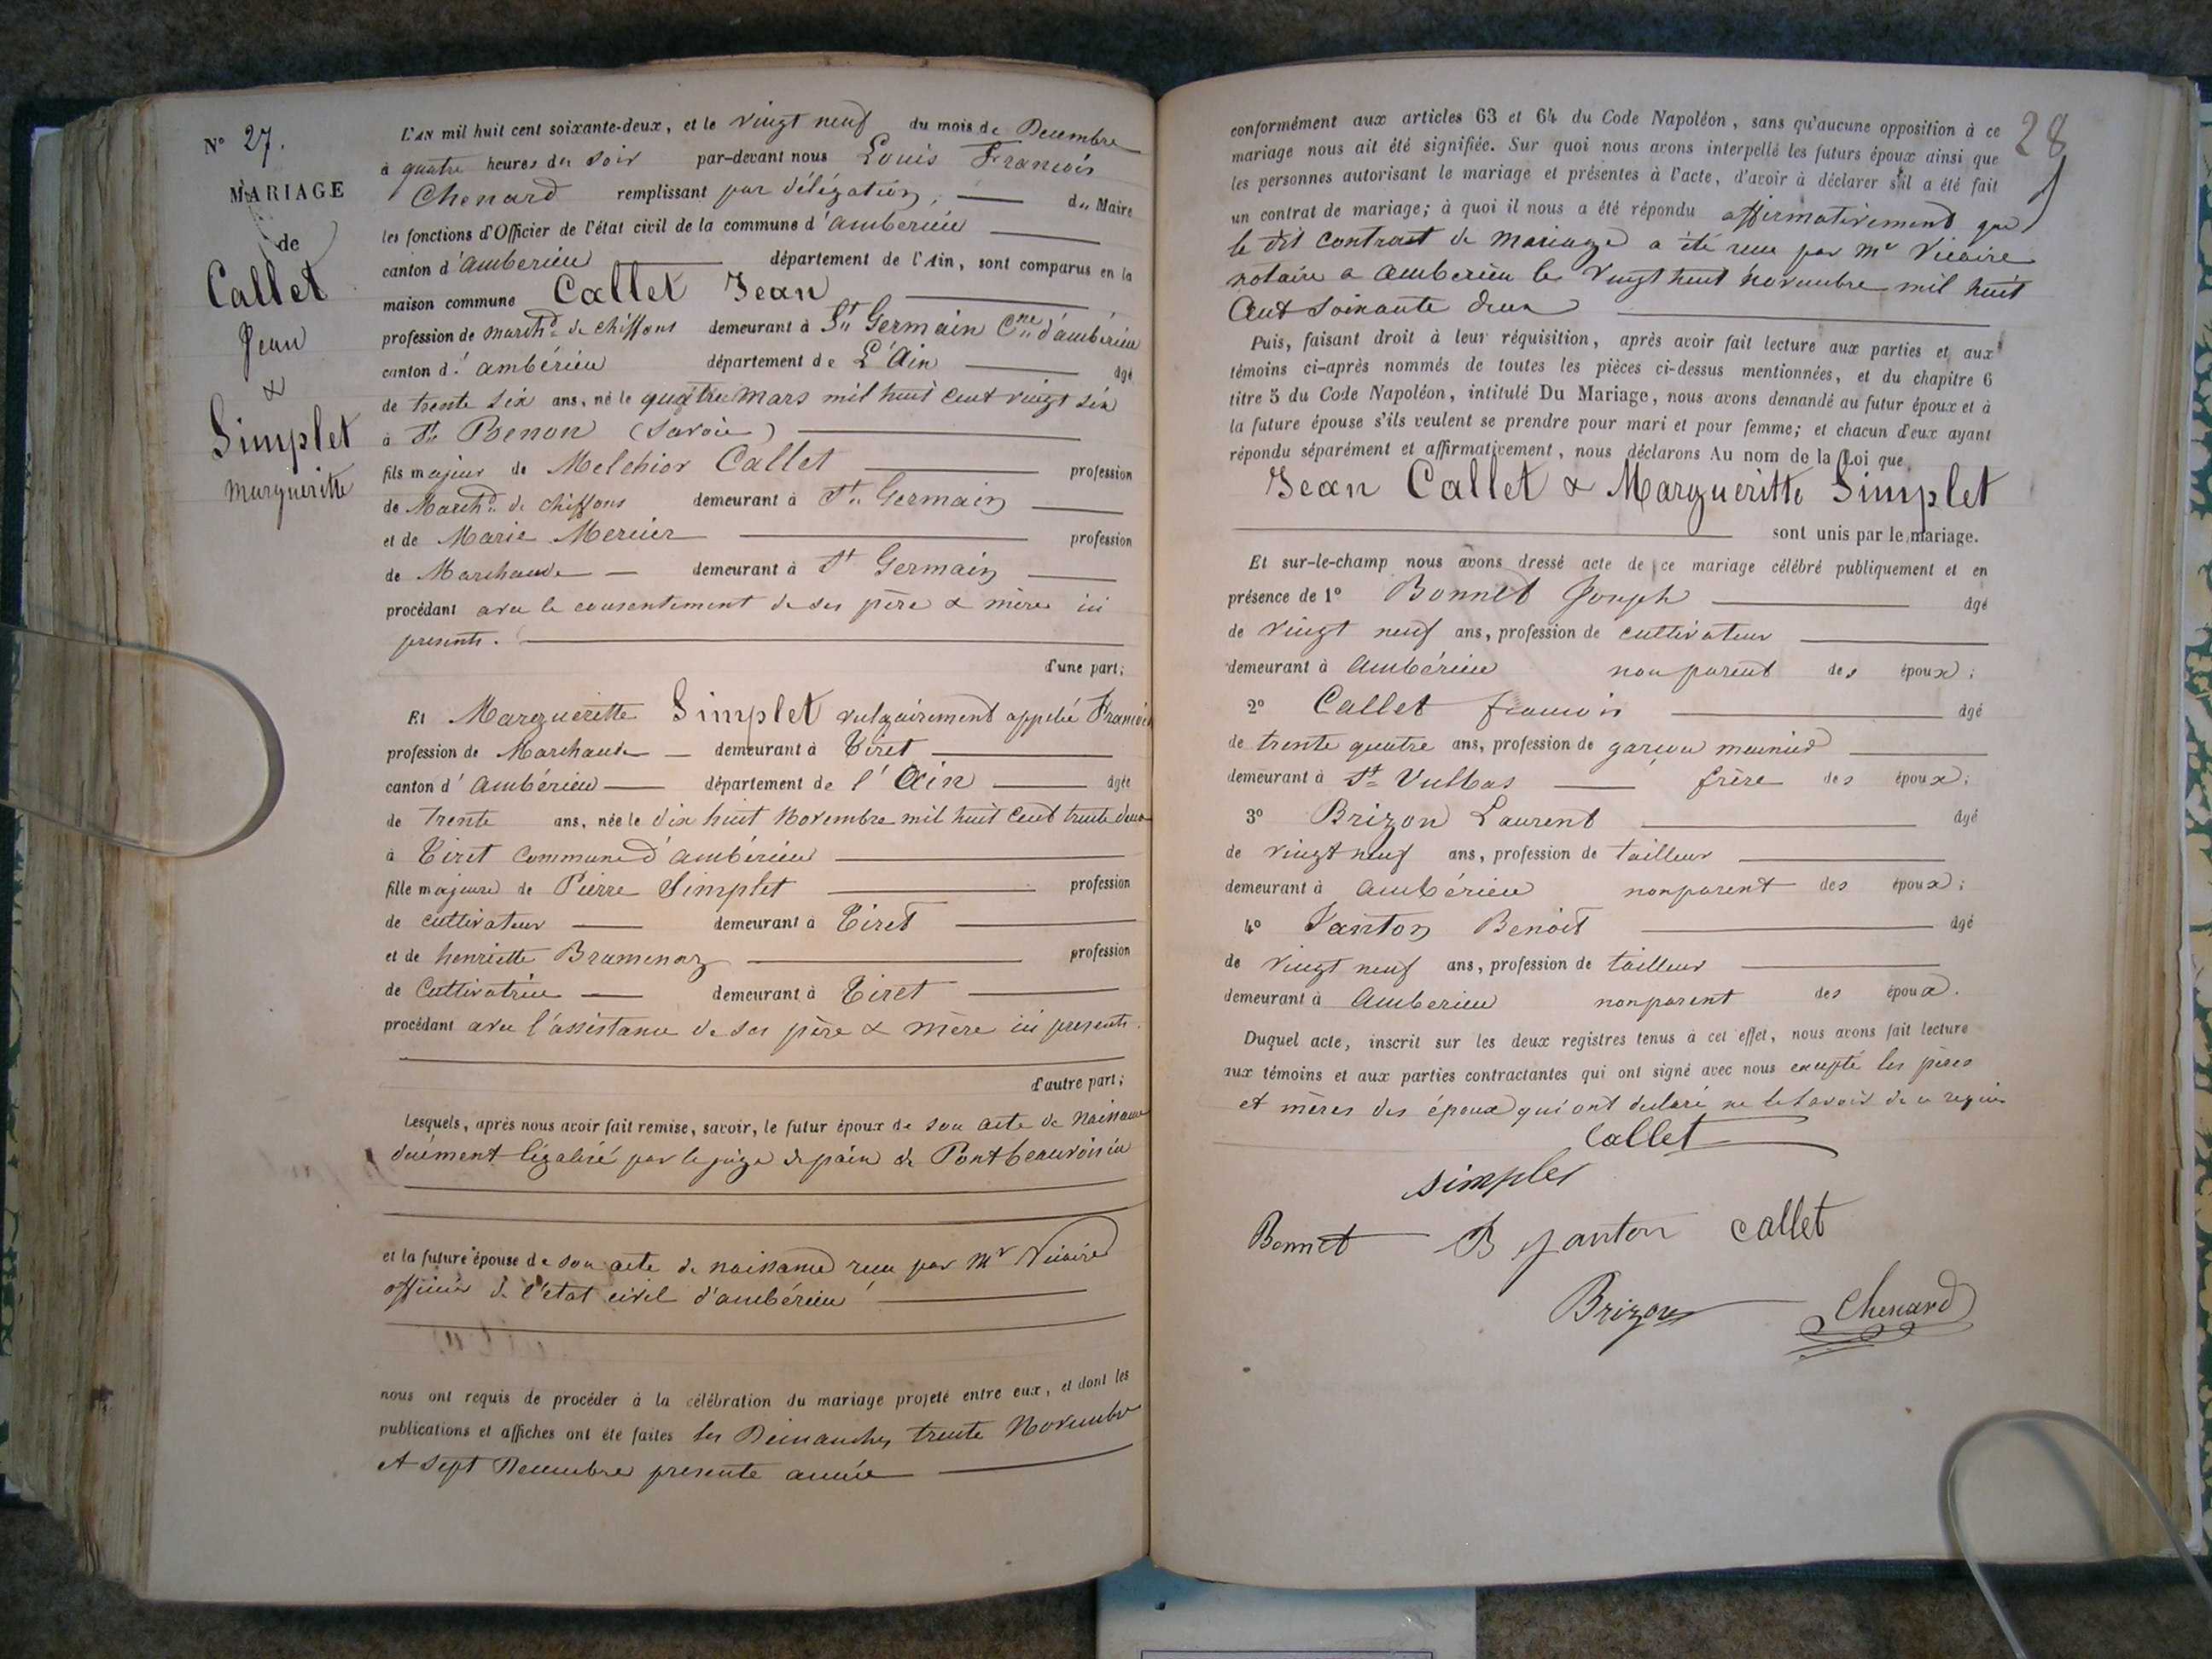 N° 27.
MARIAGE
de
Callet
Jean
&
Simplet
Margueritte
L'AN mil huit cent soixante-deux, et le vingt neuf du mois de Decembre
à quatre heures du soir par-devant nous Louis Francois
Chenard remplissant par délégation du Maire
les fonctions d'Officier de l'état civil de la commune d'ambérieu
canton d'ambérieu département de l'Ain, sont comparus en la
maison commune Callet Jean
profession de march.d de chiffons demeurant à St Germain Cne d'ambérieu
canton d'ambérieu département de L'Ain âgé
de trente six ans, né le quatre mars mil huit cent vingt six
à St. Benon (Savoie)
fils majeur de Melchior Callet profession
de March.d de chiffons demeurant à St. Germain
et de Marie Mercier profession
de Marchande demeurant à St Germain
procédant avec le consentement de ses père & mère ici
presents.
d'une part;
Et Margueritte Simplet vulgairement appelée
profession de Marchande demeurant à Tiret
canton d'ambérieu département de l'Ain âgée
de trente ans, née le dix huit Novembre mil huit cent trente deux
à Tiret commune d'ambérieu
fille majeure de Pierre Simplet profession
de cultivateur demeurant à Tiret
et de henriette Bramenaz profession
de Cultivatrice demeurant à Tiret
procédant avec l'assistance de ses père & mère ici presents.
d'autre part;
Lesquels, après nous avoir fait remise, savoir, le futur époux de son acte de Naissance
duement légalisé par le juge de paix de Pontbeauvoisin
et la future épouse de son acte de naissance reçu par Mr Vicaire
officier de l'etat civil d'ambérieu
nous ont requis de procéder à la célébration du mariage projeté entre eux, et dont les
publications et affiches ont été faites les Dimanches trente Novembre
et sept Decembre presente année
28
conformément aux articles 63 et 64 du Code Napoléon, sans qu'aucune opposition à ce
mariage nous ait été signifiée. Sur quoi nous avons interpellé les futurs époux ainsi que
les personnes autorisant le mariage et présentes à l'acte, d'avoir à déclarer s'il a été fait
un contrat de mariage; à quoi il nous a été répondu affirmativement que
le dit contrat de mariage a été reçu par Mr Vicaire
notaire a amberieu le vingt huit novembre mil huit
Cent soixante deux
Puis, faisant droit à leur réquisition, après avoir fait lecture aux parties et aux
témoins ci-après nommés de toutes les pièces ci-dessus mentionnées, et du chapitre 6
titre 5 du Code Napoléon, intitulé Du Mariage, nous avons demandé au futur époux et à
la future épouse s'ils veulent se prendre pour mari et pour femme; et chacun d'eux ayant
répondu séparément et affirmativement, nous déclarons Au nom de la Loi que
Jean Callet & Margueritte Simplet
sont unis par le mariage.
Et sur-le-champ nous avons dressé acte de ce mariage célébré publiquement et en
présence de 1° Bonnet Joseph âgé
de vingt neuf ans, profession de cultivateur
demeurant à ambérieu non parent des époux;
2° Callet francois âgé
de trente quatre ans, profession de garçon meunier
demeurant à St Vulbas frère des époux;
3° Brizon Laurent âgé
de vingt neuf ans, profession de tailleur
demeurant à ambérieu non parent des époux;
4° Janton Benoit âgé
de vingt neuf ans, profession de tailleur
demeurant à amberieu non parent des époux.
Duquel acte, inscrit sur les deux registres tenus à cet effet, nous avons fait lecture
aux témoins et aux parties contractantes qui ont signé avec nous excepté les pères
et mères des époux qui ont declaré ne le savoir de ce requis
Callet
simplet
Bonnet B Janton callet
Brizon Chenard